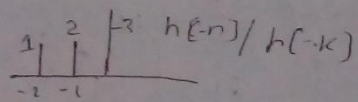 1 2 3 h[-n] / h[-k]
-2 -1